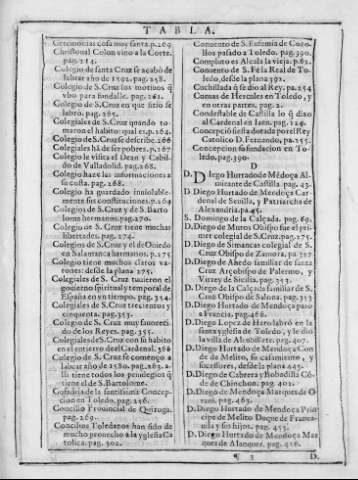 TABLA.
Ceremonias cosa muy santa.p.269
Christoual Colon vino a la Corte.
pag.214.
Colegio de santa Cruz se acabò de
labrar año de 1592. pag.268.
Colegio de S.Cruz los motiuos q̃
vbo para fundalle. pag.261.
Colegio de S.Cruz en que sitio se
labrò. pag.265.
Colegiales de S.Cruz quando to-
maron el habito: qual era.p.264.
Colegio de S.Cruz se describe.266
Colegiales hã de ser pobres.p.267
Colegio le visita el Dean y Cabil-
do de Valladolid. pag.268.
Colegio haze las informaciones a
su costa. pag.268.
Colegio ha guardado inuiolable-
mente sus constituciones.p.269
Colegios de S.Cruz y de S.Barto
lome hermanos.pag.270.
Colegio de S.Cruz tiene muchas
libertades. pag.274.
Colegios de S.Cruz y el de Ouiedo
en Salamanca hermanos.p.275
Colegio tiene muchos claros va-
rones: desde la plana 275.
Colegiales de S.Cruz tuuieron el
gouierno spiritual y temporal de
España en vn tiempo. pag.354.
Colegiales de S.Cruz trecientos y
cinquenta. pag.353.
Colegio de S.Cruz muy fauoreci-
do de los Reyes. pag.355.
Colegiales de S.Cruz con su habito
en el entierro del Cardenal.386
Colegio de S.Cruz se començò a
labrar año de 1580. pag.263. a-
lli tiene todos los preuilegios q̃
tiene el de S.Bartolome.
Cofadria de la santissima Concep-
cion en Toledo. pag.256.
Concilio Prouincial de Quiroga.
pag.269.
Concilios Toledanos han sido de
mucho prouecho a la yglesia Ca
tolica. pag.302.
Conuento de S.Eufemia de Cozo-
llos pasado a Toledo. pag.390.
Compluto es Alcala la vieja.p.62.
Conuento de S.Fe la Real de To-
ledo, desde la plana 392.
Cuchillada q̃ se dio al Rey. pa.254
Cueuas de Hercules en Toledo, y
en otras partes. pag.2.
Condestable de Castilla lo q̃ dixo
al Cardenal en Iaen. pag.124.
Concepciõ fiesta dotada por el Rey
Catolico D.Fernando, pa.255.
Concepcion su fundacion en To-
ledo.pag.390.
D
D.Diego Hurtado de Mẽdoça Al-
mirante de Castilla. pag. 43.
D.Diego Hurtado de Mendoça Car-
denal de Seuilla, y Patriarcha de
Alexandria.pa.45.
S.Domingo de la Calçada. pag.69.
D.Diego de Muros Obispo fue el pri-
mer colegial de S.Cruz.pag.275.
D.Diego de Simancas colegial de S.
Cruz Obispo de Zamora.pa.327
D.Diego de Aedo familiar de santa
Cruz Arçobispo de Palermo, y
Virrey de Sicilia. pag.353.
D.Diego de la Calçada familiar de S.
Cruz Obispo de Salona. pag.353
D.Diego Hurtado de Mendoça paso
a Francia. pag.468.
D.Diego Lopez de Haro labrò en la
santa yglesia de Toledo, y le dio
la villa de Alcubillete. pag.407.
D.Diego Hurtado de Mendoça Con
de de Melito, su casamiento, y
sucessores, desde la plana 443.
D.Diego de Cabrera y Bobadilla Cõ-
de de Chinchon. pag 402.
D.Diego de Mendoça Marques de O-
ran. pag.463.
D.Diego Hurtado de Mendoça Prin-
cipe de Melito Duque de Franca-
uila y su hijos. pag.453.
D.Diego Hurtado de Mendoça Mar
ques de Almenara. pag.416.
¶ 3
D.